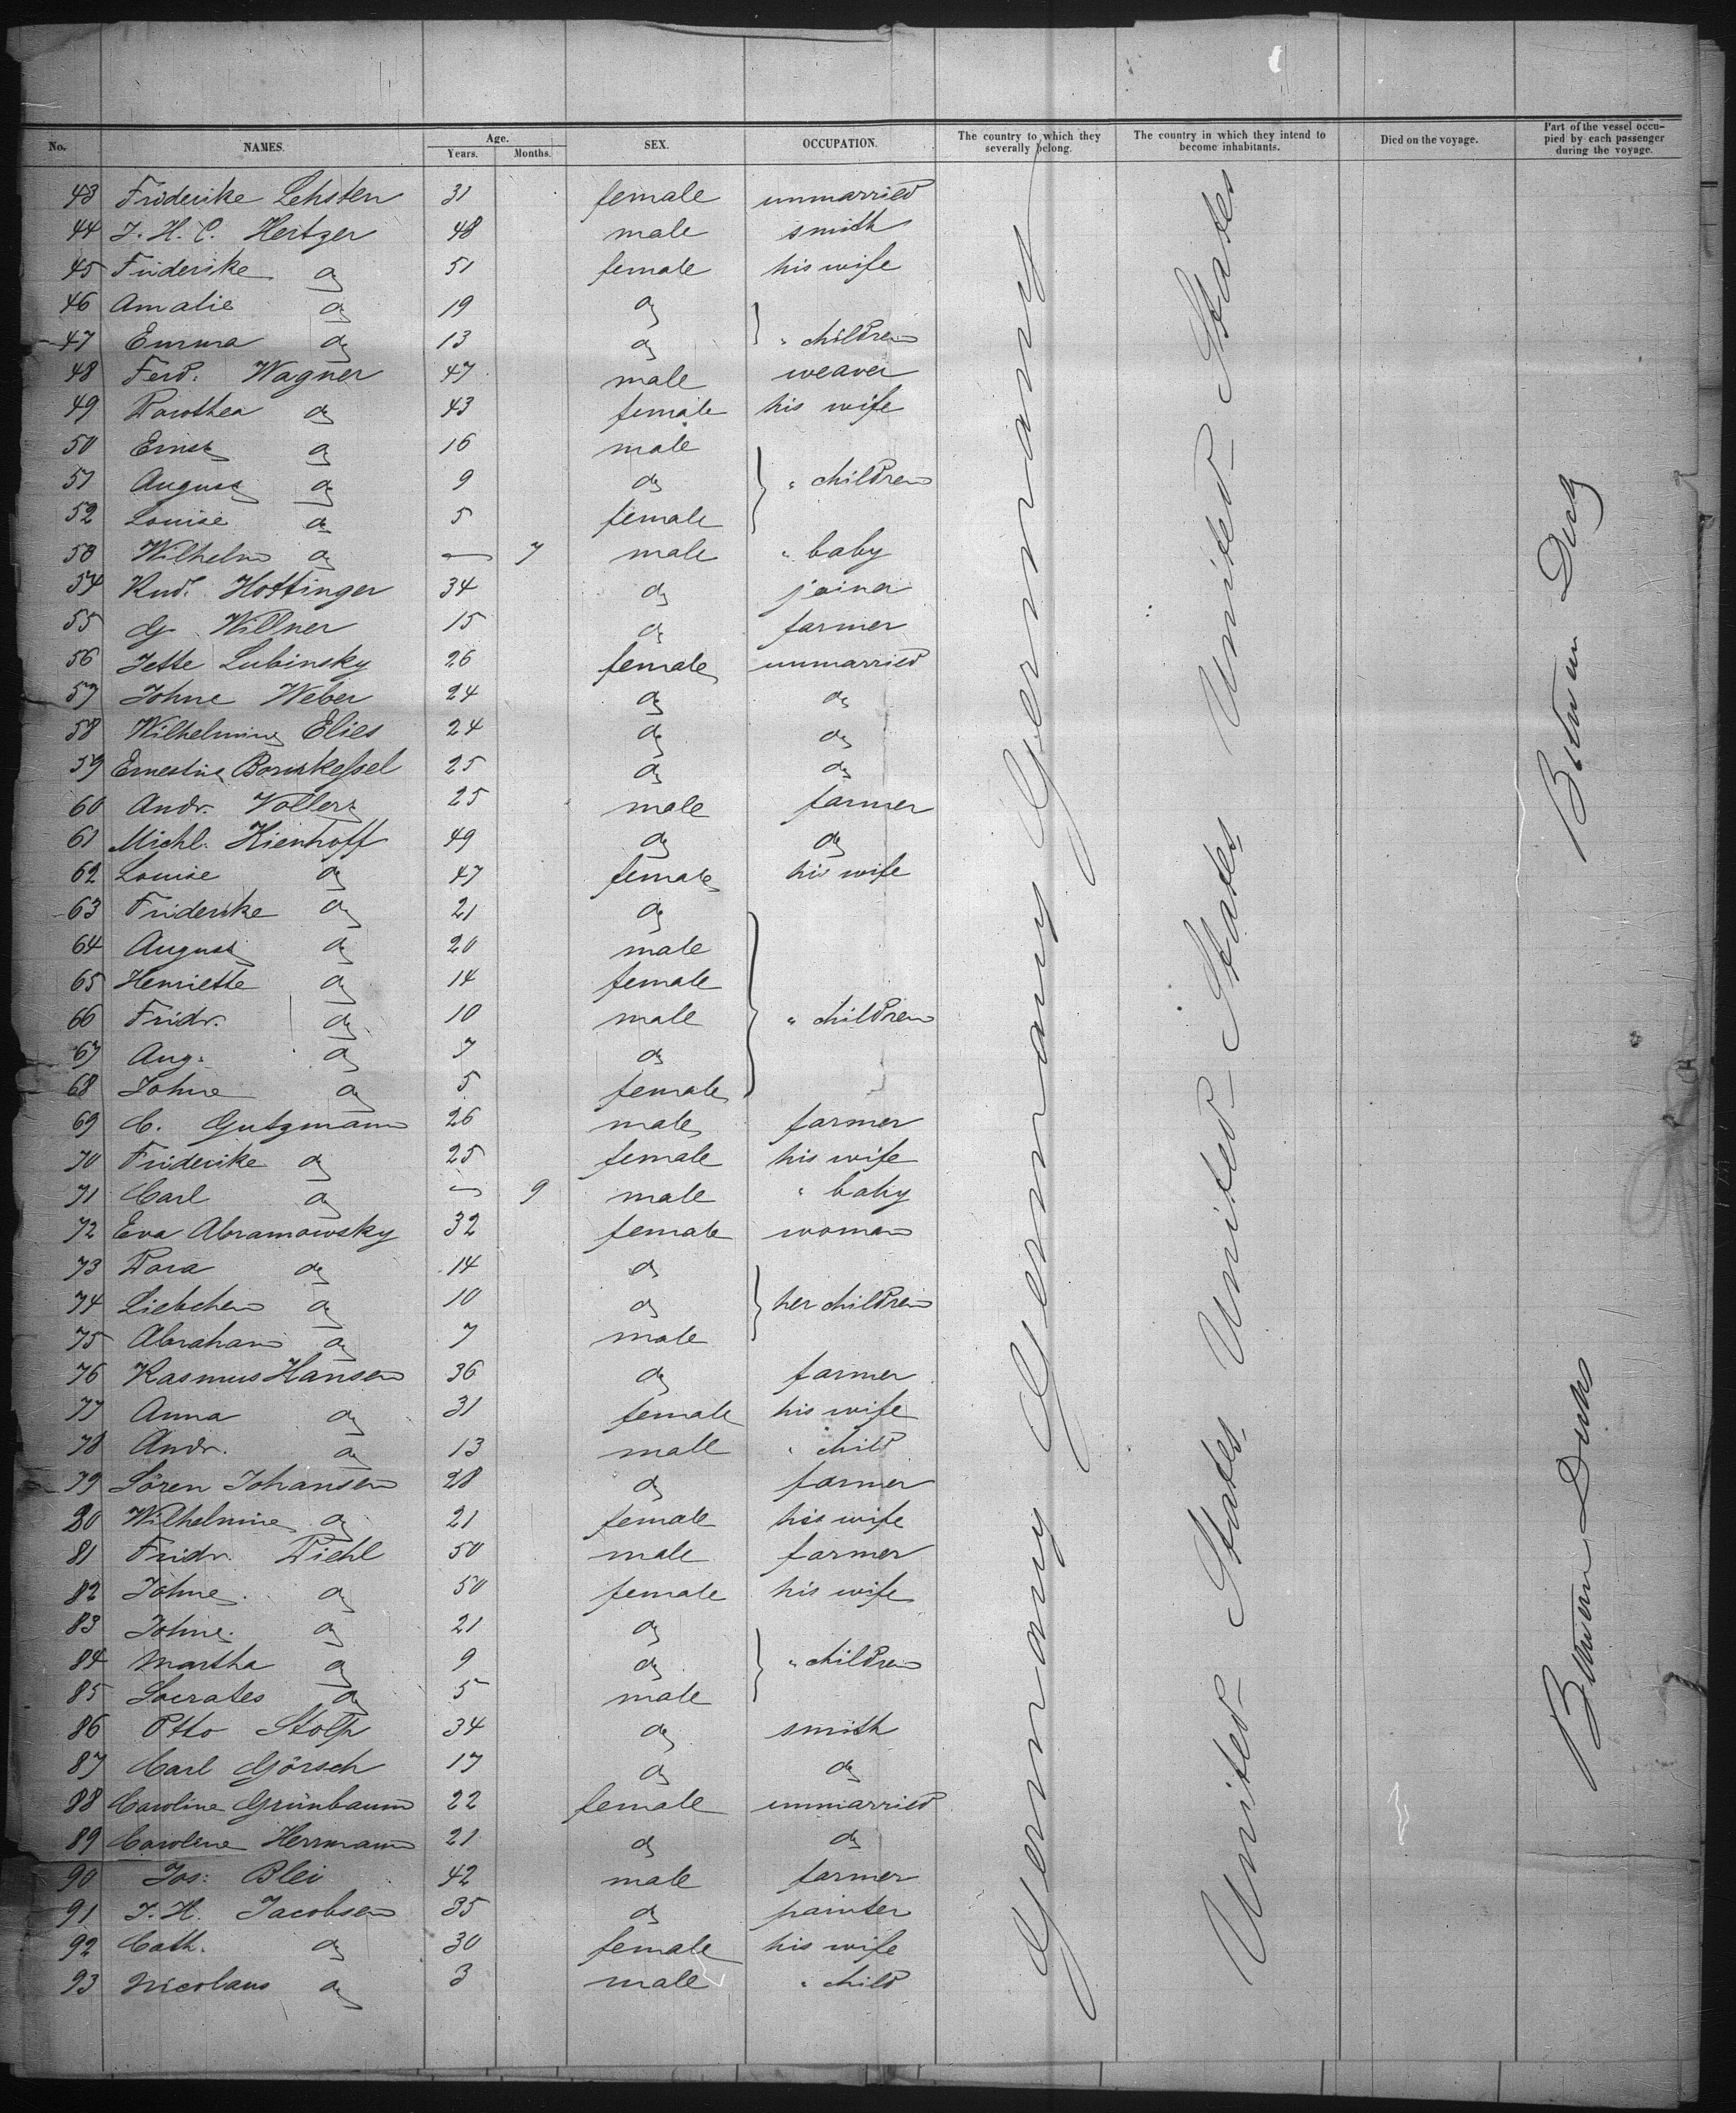 No. NAMES. Age. Years. Months. SEX. OCCUPATION. The country to which they severally belong. The country in which they intend to become inhabitants. Died on the voyage. Part of the vessel occupied by each passenger during the voyage.
43 Friderike Lehsten 31 female unmarried
44 J. H. C. Hertzer 48 male smith
45 Friderike do 51 female his wife
46 Amalie do 19 do
47 Emma do 13 do " children
48 Ferd. Wagner 47 male weaver
49 Dorothea do 43 female his wife
50 Ernst do 16 male
51 August do 9 do " children
52 Louise do 5 female
53 Wilhelm do — 7 male " baby
54 Rud. Hottinger 34 do joiner
55 do Willner 15 do farmer
56 Jette Lubinsky 26 female unmarried
57 Johne Weber 24 do do
58 Wilhelmine Elies 24 do do
59 Ernestine Bornkessel 25 do do
60 Andr. Vollerz 25 male farmer
61 Michl. Kienhoff 49 do do
62 Louise do 47 female his wife
63 Friderike do 21 do
64 August do 20 male
65 Henriette do 14 female
66 Fridr. do 10 male " children
67 Aug. do 7 do
68 Johne do 5 female
69 C. Gutzmann 26 male farmer
70 Friderike do 25 female his wife
71 Carl do — 9 male " baby
72 Eva Abramowsky 32 female woman
73 Dora do 14 do
74 Liebchen do 10 do her children
75 Abraham do 7 male
76 Rasmus Hansen 36 do farmer
77 Anna do 31 female his wife
78 Andr. do 13 male " child
79 Sören Johansen 28 do farmer
80 Wilhelmine do 21 female his wife
81 Fridr. Diehl 50 male farmer
82 Johne do 50 female his wife
83 Johne do 21 do
84 Martha do 9 do " children
85 Socrates do 5 male
86 Otto Stolp 34 do smith
87 Carl Görsch 17 do do
88 Caroline Grünbaum 22 female unmarried
89 Carolene Herrmann 21 do do
90 Jos: Blei 42 male farmer
91 J. H. Jacobsen 35 do painter
92 Cath. do 30 female his wife
93 Nicolaus do 3 male " child
Germany Germany Germany
United States United States United States
Between Deck Between Deck